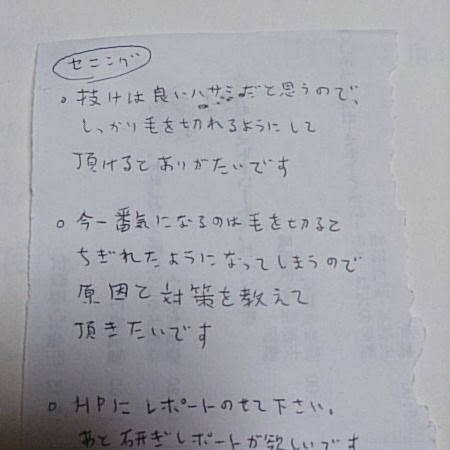 セニング
○ 抜けは良いハサミだと思うので、
しっかり毛を切れるようにして
頂けるとありがたいです
○ 今一番気になるのは毛を切ると
ちぎれたようになってしまうので
原因と対策を教えて
頂きたいです
○ HPにレポートのせて下さい。
あと研ぎレポートが欲しいです